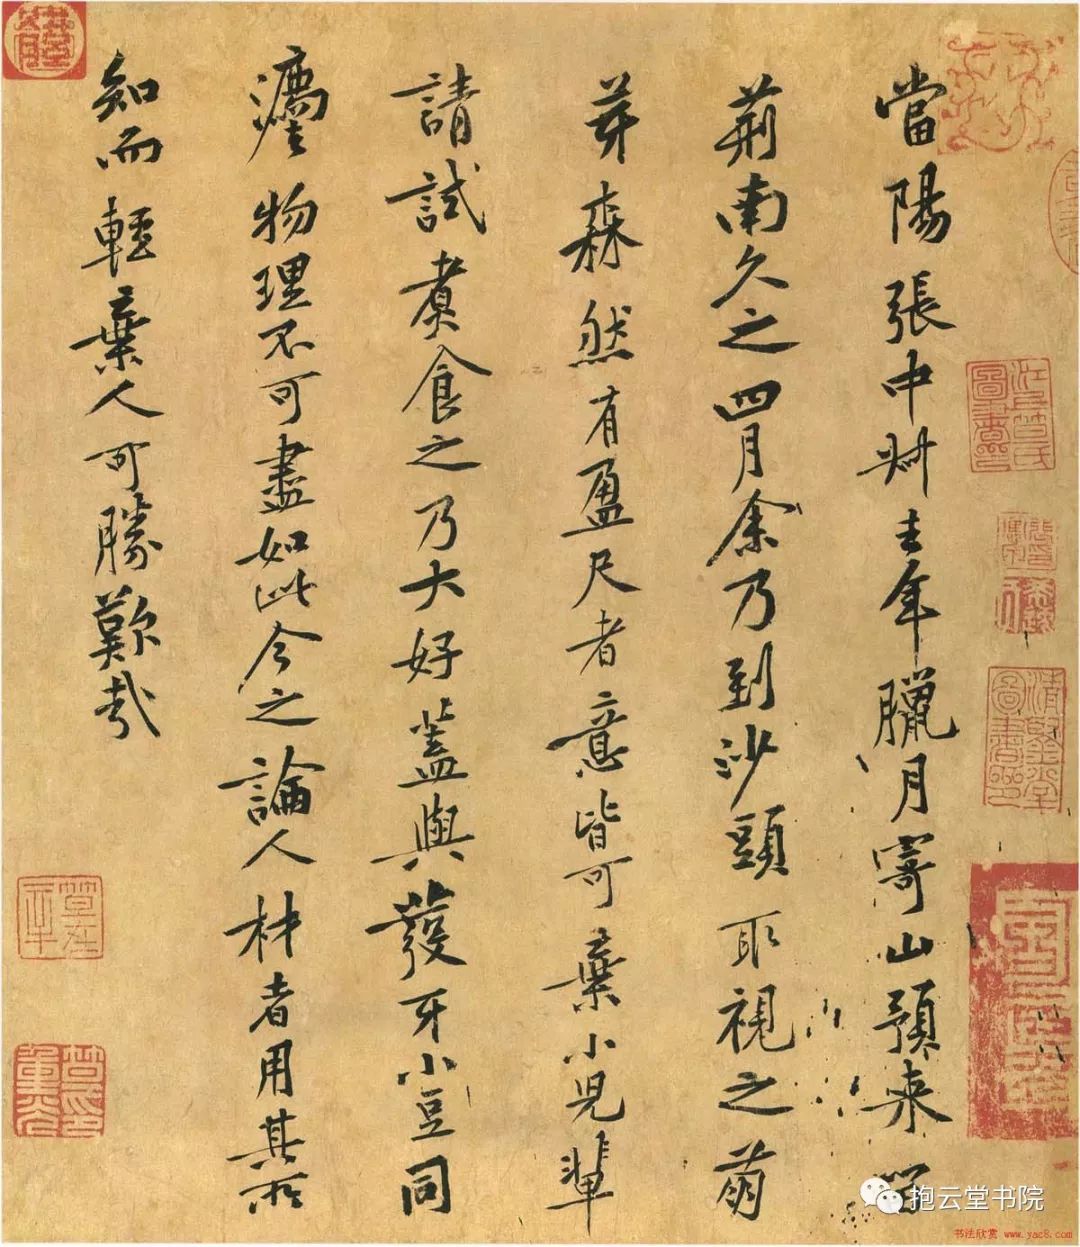 當陽張中叔去年臘月寄山預來留
荊南久之四月余乃到沙頭取視之萌
芽森然有盈尺者意皆可棄小兒輩
請試煑食之乃大好蓋與發牙小豆同
灋物理不可盡如此今之論人材者用其所
知而輕棄人可勝歎哉
抱云堂书院
书法欣赏 www.yac8.com